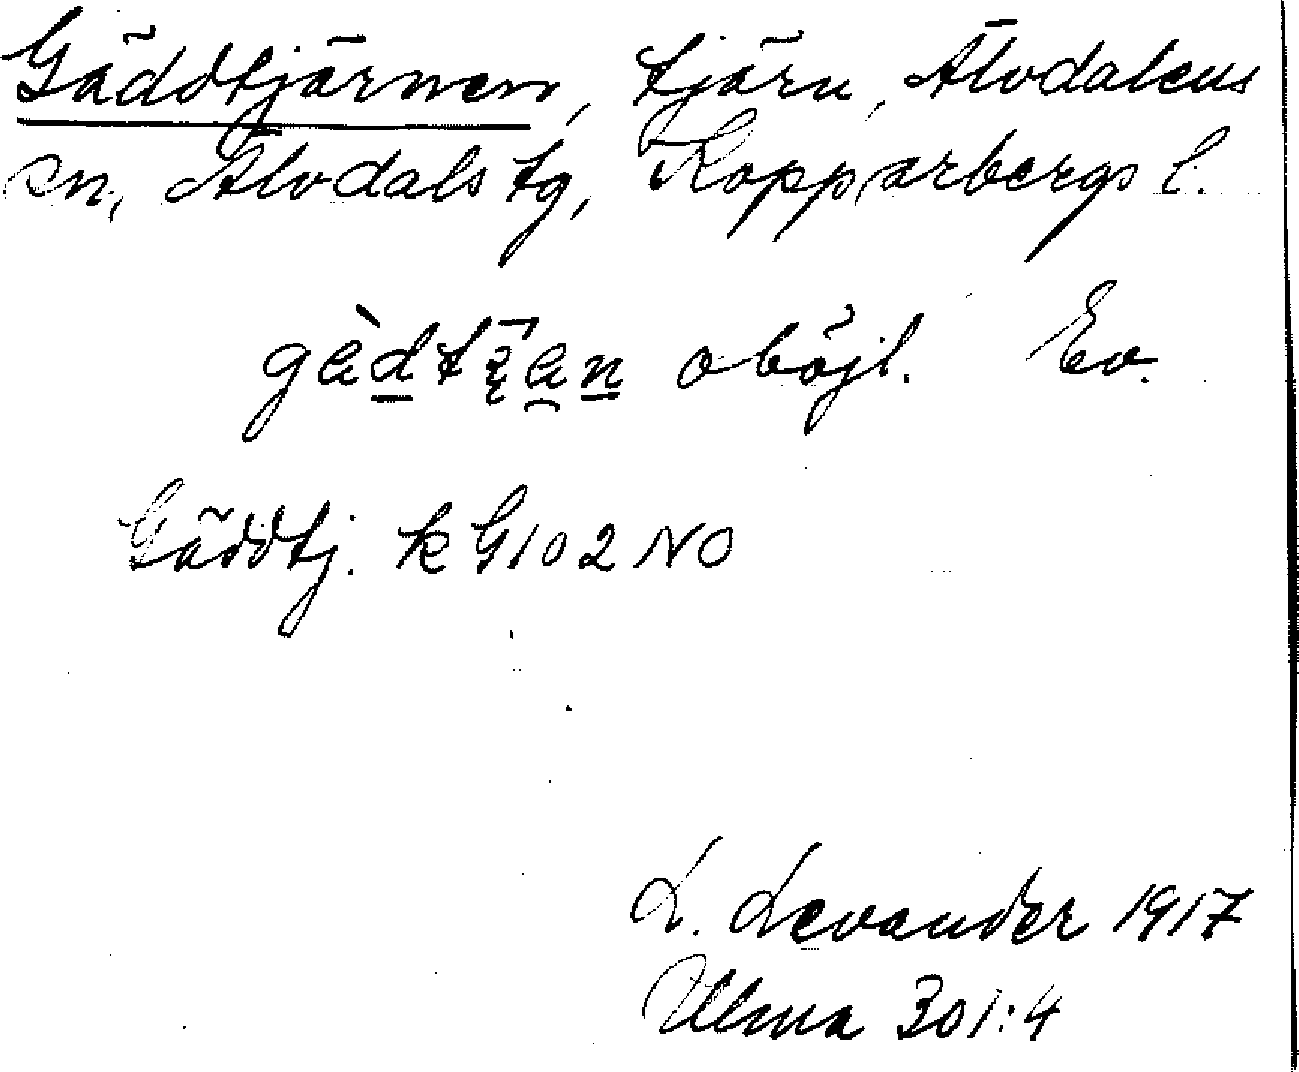 Gäddtjärnen, tjärn, Älvdalens
sn, Älvdals tg, Kopparbergs l.
oböjl. Ev.
Gäddtj. k G102 NO
L. Levander 1917
Ulma 301:4